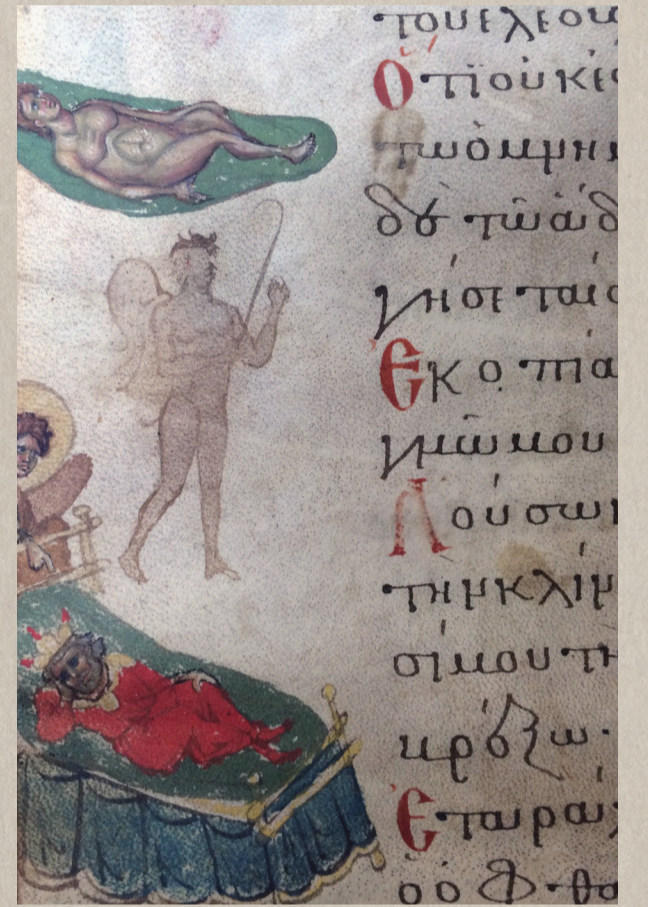 τουἐλεου
Ὅτι οὐκ ἐσ
τω ὁ μνη
δὲ τῶ ἅδ
γήσεταί σ
Ἐκοπία
γμῶ μου
Λούσω
τὴν κλίν
σί μου τη
βρέξω·
Ἐταράχ
ὁ ὀφθα